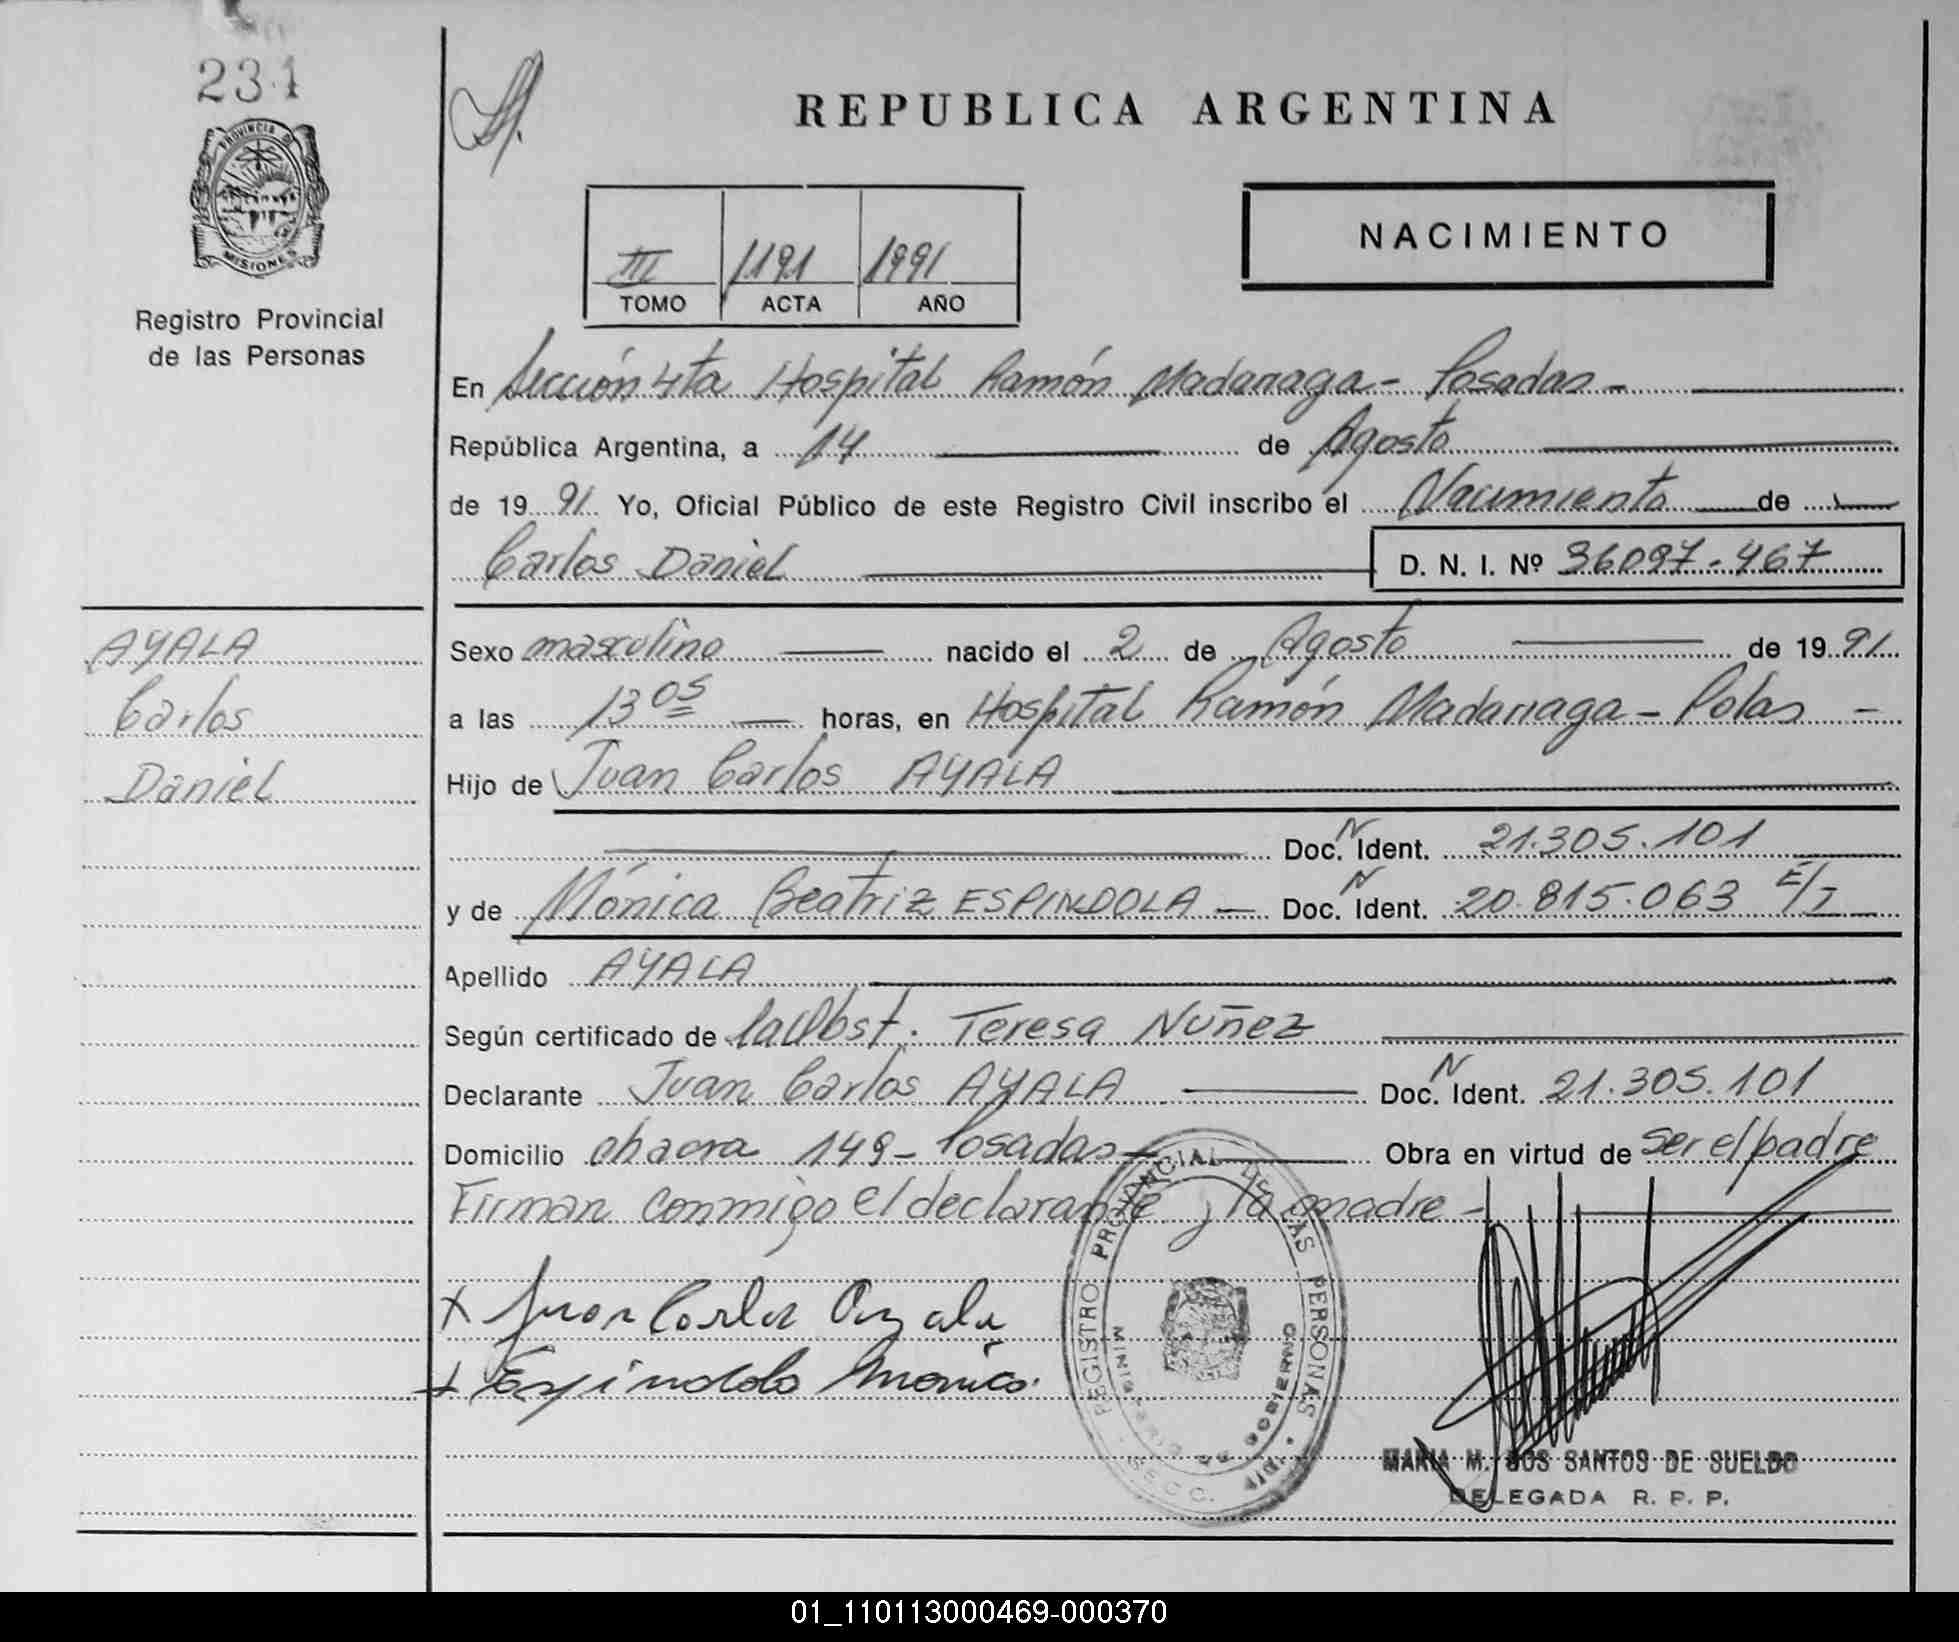 231
PROVINCIA DE
MISIONES
Registro Provincial
de las Personas
REPUBLICA ARGENTINA
III 1191 1991
TOMO ACTA AÑO
NACIMIENTO
En Sección 4ta Hospital Ramón Madariaga - Posadas -
República Argentina, a 14 de Agosto
de 1991 Yo, Oficial Público de este Registro Civil inscribo el Nacimiento de
Carlos Daniel D. N. I. Nº 36097.467
AYALA
Carlos
Daniel
Sexo masculino nacido el 2 de Agosto de 1991
a las 13 05 horas, en Hospital Ramón Madariaga - Pdas -
Hijo de Juan Carlos AYALA
Doc. N Ident. 21.305.101
y de Mónica Beatriz ESPINDOLA - Doc. N Ident. 20.815.063 E/T
Apellido AYALA
Según certificado de la Obst. Teresa Nuñez
Declarante Juan Carlos AYALA Doc. N Ident. 21.305.101
Domicilio chacra 149 - Posadas - Obra en virtud de ser el padre
Firman conmigo el declarante y la madre -
x Juan Carlos Ayala
x Espindola Monica
REGISTRO PROVINCIAL DE LAS PERSONAS
MINISTERIO DE GOBIERNO
SECC.
MARIA M. DOS SANTOS DE SUELDO
DELEGADA R. P. P.
01_110113000469-000370